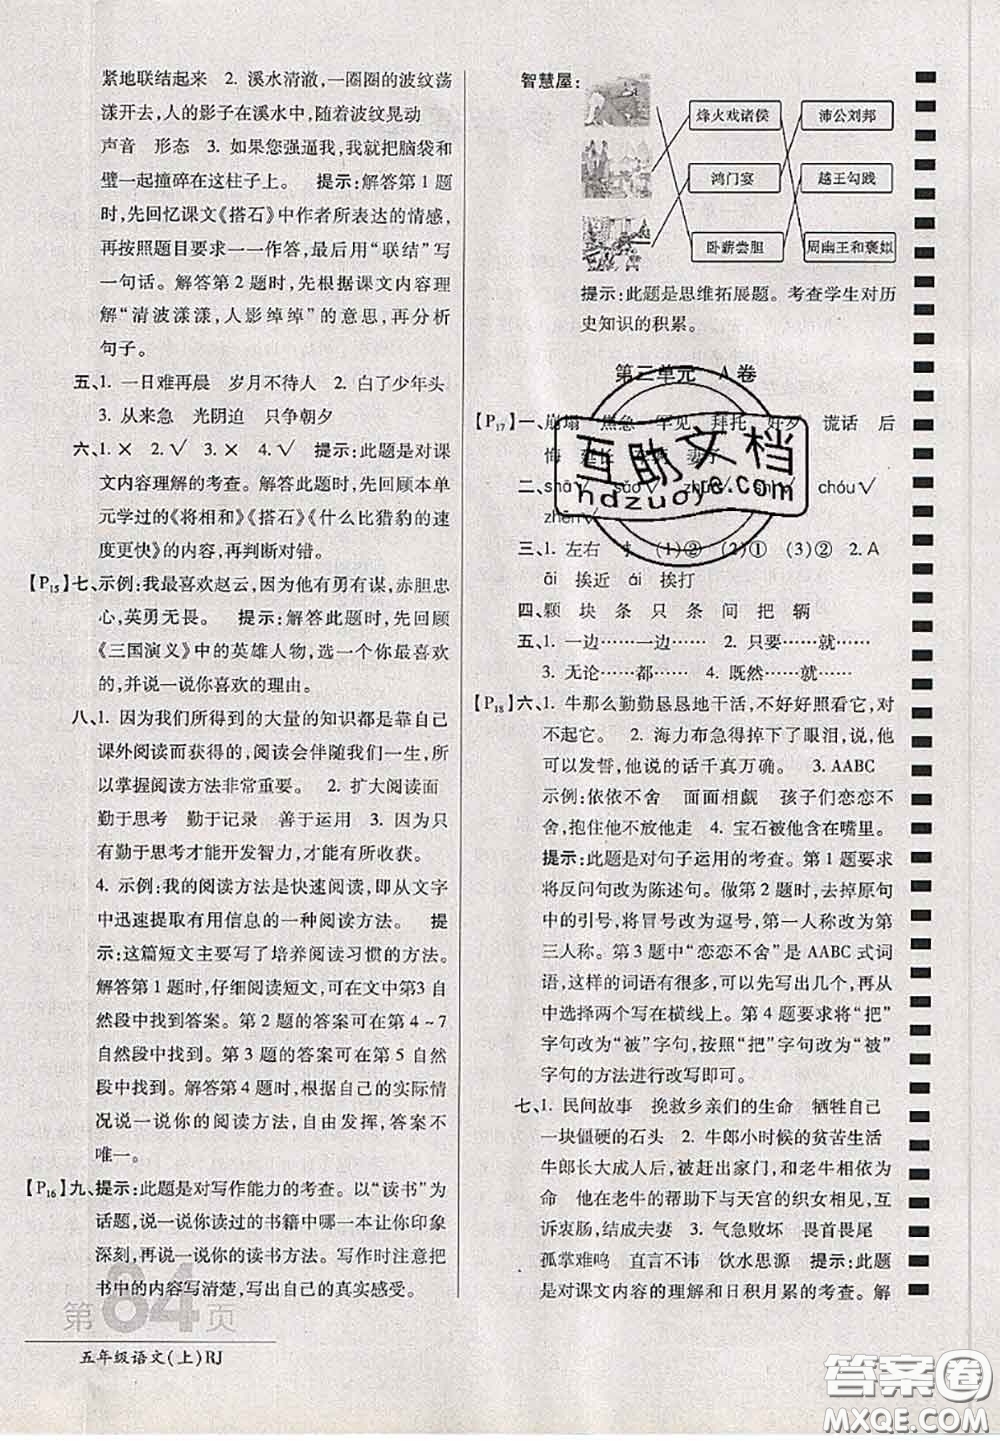 紧地联结起来　2. 溪水清澈,一圈圈的波纹荡
漾开去,人的影子在溪水中,随着波纹晃动
声音　形态　3. 如果您强逼我,我就把脑袋和
璧一起撞碎在这柱子上。　提示:解答第 1 题
时,先回忆课文《搭石》中作者所表达的情感,
再按照题目要求一一作答,最后用“联结”写
一句话。解答第 2 题时,先根据课文内容理
解“清波漾漾,人影绰绰”的意思,再分析
句子。
五、1. 一日难再晨　岁月不待人　2. 白了少年头
3. 从来急　光阴迫　只争朝夕
六、1. ×　2. √　3. ×　4. √　提示:此题是对课
文内容理解的考查。解答此题时,先回顾本单
元学过的《将相和》《搭石》《什么比猎豹的速
度更快》的内容,再判断对错。
【P15】七、示例:我最喜欢赵云,因为他有勇有谋,赤胆忠
心,英勇无畏。　提示:解答此题时,先回顾
《三国演义》中的英雄人物,选择一个最喜欢
的,并说一说你喜欢的理由。
八、1. 因为我们所得到的大量的知识都是靠自己
课外阅读而获得的,阅读会伴随我们一生,所
以掌握阅读方法非常重要。　2. 扩大阅读面
勤于思考　勤于记录　善于运用　3. 因为只
有勤于思考才能开发智力,才能有所收获。
4. 示例:我的阅读方法是快速阅读,即从文字
中迅速提取有用信息的一种阅读方法。　提
示:这篇短文主要写了培养阅读习惯的方法。
解答第 1 题时,仔细阅读短文,可在文中第3 自
然段中找到答案。第 2 题的答案可在第 4～7
自然段中找到。第 3 题的答案可在第 5 自然
段中找到。解答第 4 题时,根据自己的实际
情况说一说你的阅读方法,有所发挥,答案不
唯一。
【P16】九、提示:此题是对写作能力的考查。以“读书”为
话题,说一说你读过的书籍中哪一本让你印象
深刻,再说一说你的读书方法。写作时注意把
书中的内容写清楚,写出自己的真实感受。
第64页
五年级语文(上)RJ
智慧屋:
烽火戏诸侯　沛公刘邦
鸿门宴　越王勾践
卧薪尝胆　周幽王和褒姒
提示:此题是思维拓展题。考查学生对历
史知识的积累。
第三单元　A 卷
【P17】一、崩塌　焦急　罕见　拜托　好歹　谎话　后
悔　延长　妻子
二、shā √ suǒ √ chóu √
zhēn √
三、1. 左右　扌　(1)②　(2)①　(3)②　2. A
āi　挨近　ái　挨打
四、颗　块　条　只　条　间　把　辆
五、1. 一边……一边……　2. 只要……就……
3. 无论……都……　4. 既然……就……
【P18】六、1. 牛那么勤勤恳恳地干活,不好好照看它,对
不起它。　2. 海力布急得掉下了眼泪,说,他
可以发誓,他说的话千真万确。　3. AABC
示例:依依不舍　面面相觑　孩子们恋恋不
舍,抱住他不放他走　4. 宝石被他含在嘴里。
提示:此题是对句子运用的考查。第 1 题要求
将反问句改为陈述句。做第 2 题时,去掉原句
中的引号,将冒号改为逗号,第一人称改为第
三人称。第 3 题中“恋恋不舍”是 AABC 式词
语,这样的词语有很多,可以先写出几个,再从
中选择两个写在横线上。第 4 题要求将“把”
字句改为“被”字句,按照“把”字句改为“被”
字句的方法进行改写即可。
七、1. 民间故事　挽救乡亲们的生命　牺牲自己
一块僵硬的石头　2. 牛郎小时候的贫苦生活
牛郎长大成人后,被赶出家门,和老牛相依为
命　他在老牛的帮助下与天宫的织女相见,互
诉衷肠,结成夫妻　3. 气急败坏　畏首畏尾
孤掌难鸣　直言不讳　饮水思源　提示:此题
是对课文内容的理解和日积月累的考查。解
互助文档
hdzuoye.com
答案圈
MXQE.COM